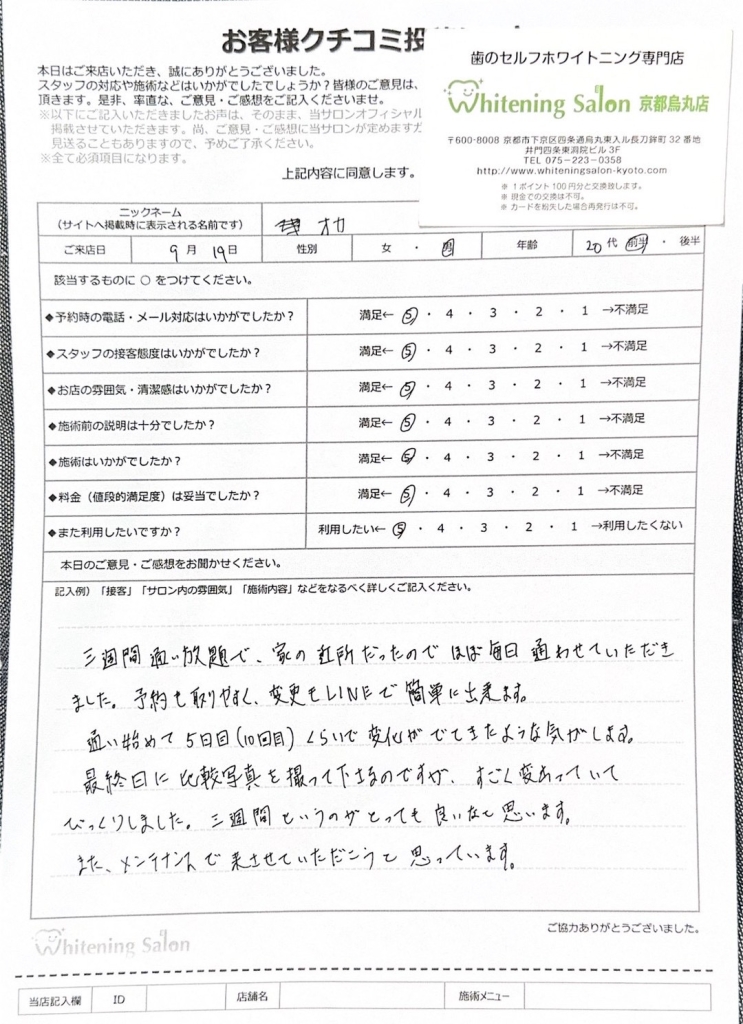 お客様クチコミ投
本日はご来店いただき、誠にありがとうございました。
スタッフの対応や施術などはいかがでしたでしょうか？皆様のご意見は、
頂きます。是非、率直な、ご意見・ご感想をご記入くださいませ。
※以下にご記入いただきましたお声は、そのまま、当サロンオフィシャル
掲載させていただきます。尚、ご意見・ご感想に当サロンが定めますガ
見送ることもありますので、予めご了承ください。
※全て必須項目になります。
上記内容に同意します。
歯のセルフホワイトニング専門店
Whitening Salon 京都烏丸店
〒600-8008 京都市下京区四条通烏丸東入ル長刀鉾町 32 番地
井門四条東洞院ビル 3F
TEL 075-223-0358
http://www.whiteningsalon-kyoto.com
※ 1ポイント100円分と交換致します。
※ 現金での交換は不可。
※ カードを紛失した場合再発行は不可。
ニックネーム
（サイトへ掲載時に表示される名前です）
ご来店日 9月 19日 性別 女 ・ 男 年齢 20代 前半 ・ 後半
該当するものに ○ をつけてください。
◆予約時の電話・メール対応はいかがでしたか？ 満足← 5 ・ 4 ・ 3 ・ 2 ・ 1 →不満足
◆スタッフの接客態度はいかがでしたか？ 満足← 5 ・ 4 ・ 3 ・ 2 ・ 1 →不満足
◆お店の雰囲気・清潔感はいかがでしたか？ 満足← 5 ・ 4 ・ 3 ・ 2 ・ 1 →不満足
◆施術前の説明は十分でしたか？ 満足← 5 ・ 4 ・ 3 ・ 2 ・ 1 →不満足
◆施術はいかがでしたか？ 満足← 5 ・ 4 ・ 3 ・ 2 ・ 1 →不満足
◆料金（値段的満足度）は妥当でしたか？ 満足← 5 ・ 4 ・ 3 ・ 2 ・ 1 →不満足
◆また利用したいですか？ 利用したい← 5 ・ 4 ・ 3 ・ 2 ・ 1 →利用したくない
本日のご意見・ご感想をお聞かせください。
記入例）「接客」「サロン内の雰囲気」「施術内容」などをなるべく詳しくご記入ください。
三週間通い放題で、家の近所だったのでほぼ毎日通わせていただき
ました。予約も取りやすく、変更もLINEで簡単に出来ます。
通い始めて5日目(10回目)くらいで変化がでてきたような気がします。
最終日に比較写真を撮って下さるのですが、すごく変わっていて
びっくりしました。三週間というのがとっても良いなと思います。
また、メンテナンスで来させていただこうと思っています。
ご協力ありがとうございました。
Whitening Salon
当店記入欄 ID 店舗名 施術メニュー